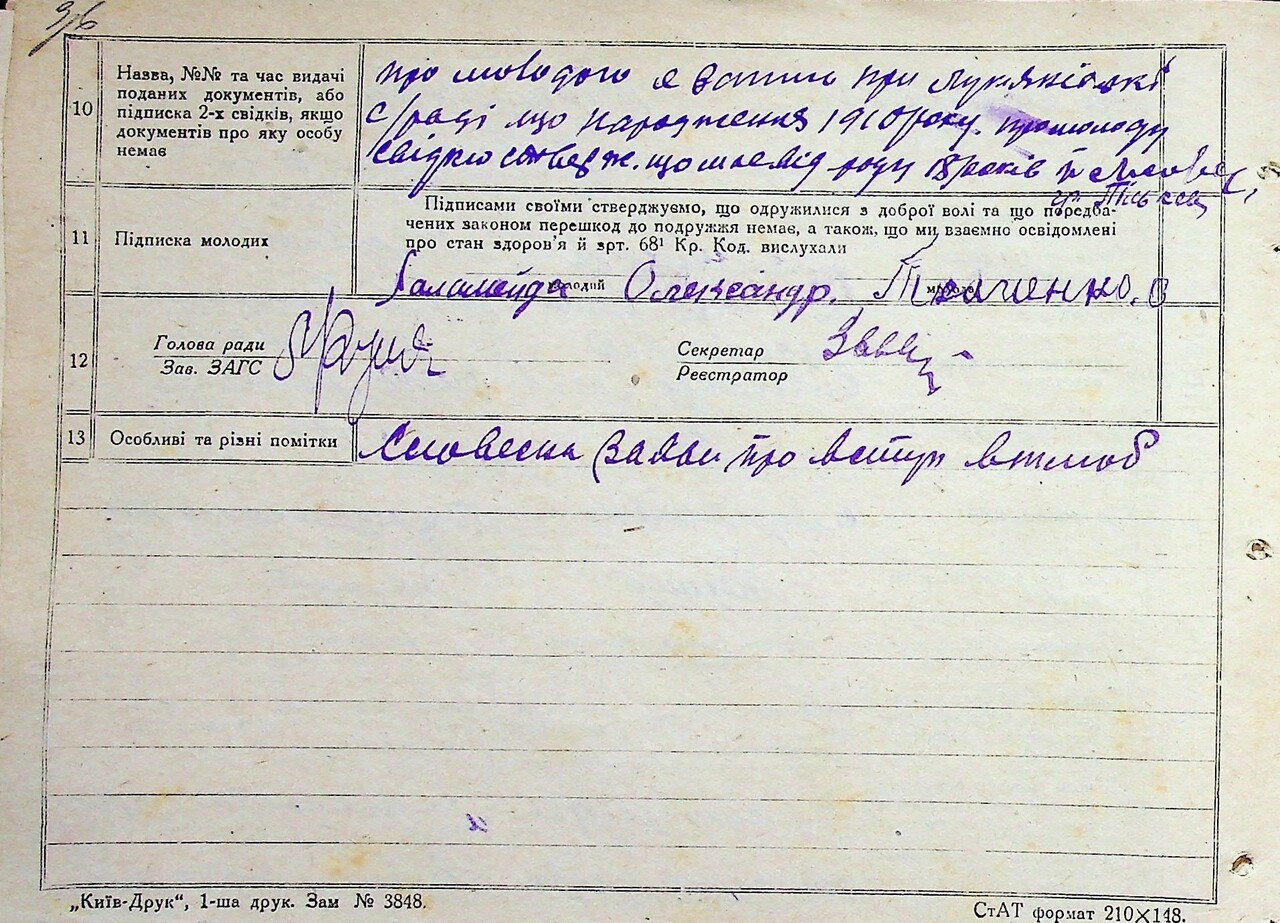 96
10
Назва, №№ та час видачі
поданих документів, або
підписка 2-х свідків, якщо
документів про яку особу
немає
про молодого є запис при Лукянівській
с/раді що народження 1910 року. про молоду
свідки ствердж. що має від роду 18 років
11
Підписка молодих
Підписами своїми стверджуємо, що одружилися з доброї волі та що передба-
чених законом перешкод до подружжя немає, а також, що ми взаємно освідомлені
про стан здоров'я й зрт. 68¹ Кр. Код. вислухали
молодий
Баламейда Олександр. Ткаченко. О
12
Голова ради
Зав. ЗАГС
Секретар
Реєстратор
13
Особливі та різні помітки
Словесна заява про вступ
„Київ-Друк“, 1-ша друк. Зам № 3848.
СтАТ формат 210×148.